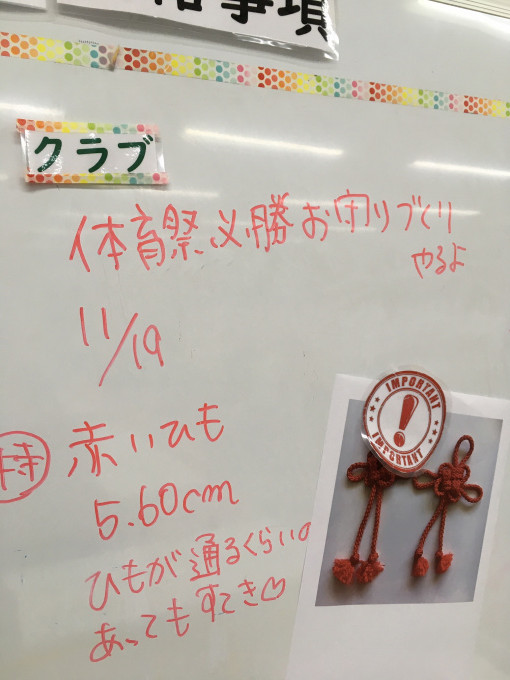 事項
クラブ
体育祭必勝お守りづくり
やるよ
11/19
持 赤いひも
5.60cm
ひもが通るくらいの
あってもすてき♡
IMPORTANT
!
IMPORTANT